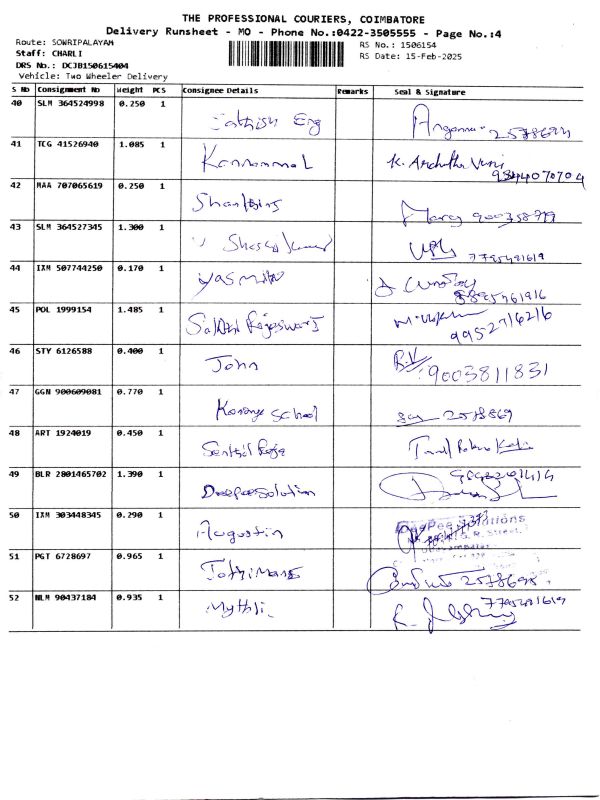 THE PROFESSIONAL COURIERS, COIMBATORE
Delivery Runsheet - MO - Phone No.:0422-3505555 - Page No.:4
Route: SOWRIPALAYAM
RS No.: 1506154
Staff: CHARLI
RS Date: 15-Feb-2025
DRS No.: DCJB150615404
Vehicle: Two Wheeler Delivery
S No Consignment No Weight PCS Consignee Details Remarks Seal & Signature
40 SLM 364524998 0.250 1 Sathish Eng
41 TCG 41526940 1.085 1 Kannammal K. Archutha Vani
9844070704
42 MAA 707065619 0.250 1
43 SLM 364527345 1.300 1 7795481619
44 IXM 507744250 0.170 1
45 POL 1999154 1.485 1 Sakthi Rajeswari
9952716216
46 STY 6126588 0.400 1 John R.V 9003811831
47 GGN 900609081 0.770 1 School 2578869
48 ART 1924019 0.450 1 Senthil Raja
49 BLR 2801465702 1.390 1 Deepee Solution
50 IXM 303448345 0.290 1 Augustin DeePee Solutions
51 PGT 6728697 0.965 1 Jothimani 2578698
52 NLM 90437184 0.935 1 Mythli 7795481619